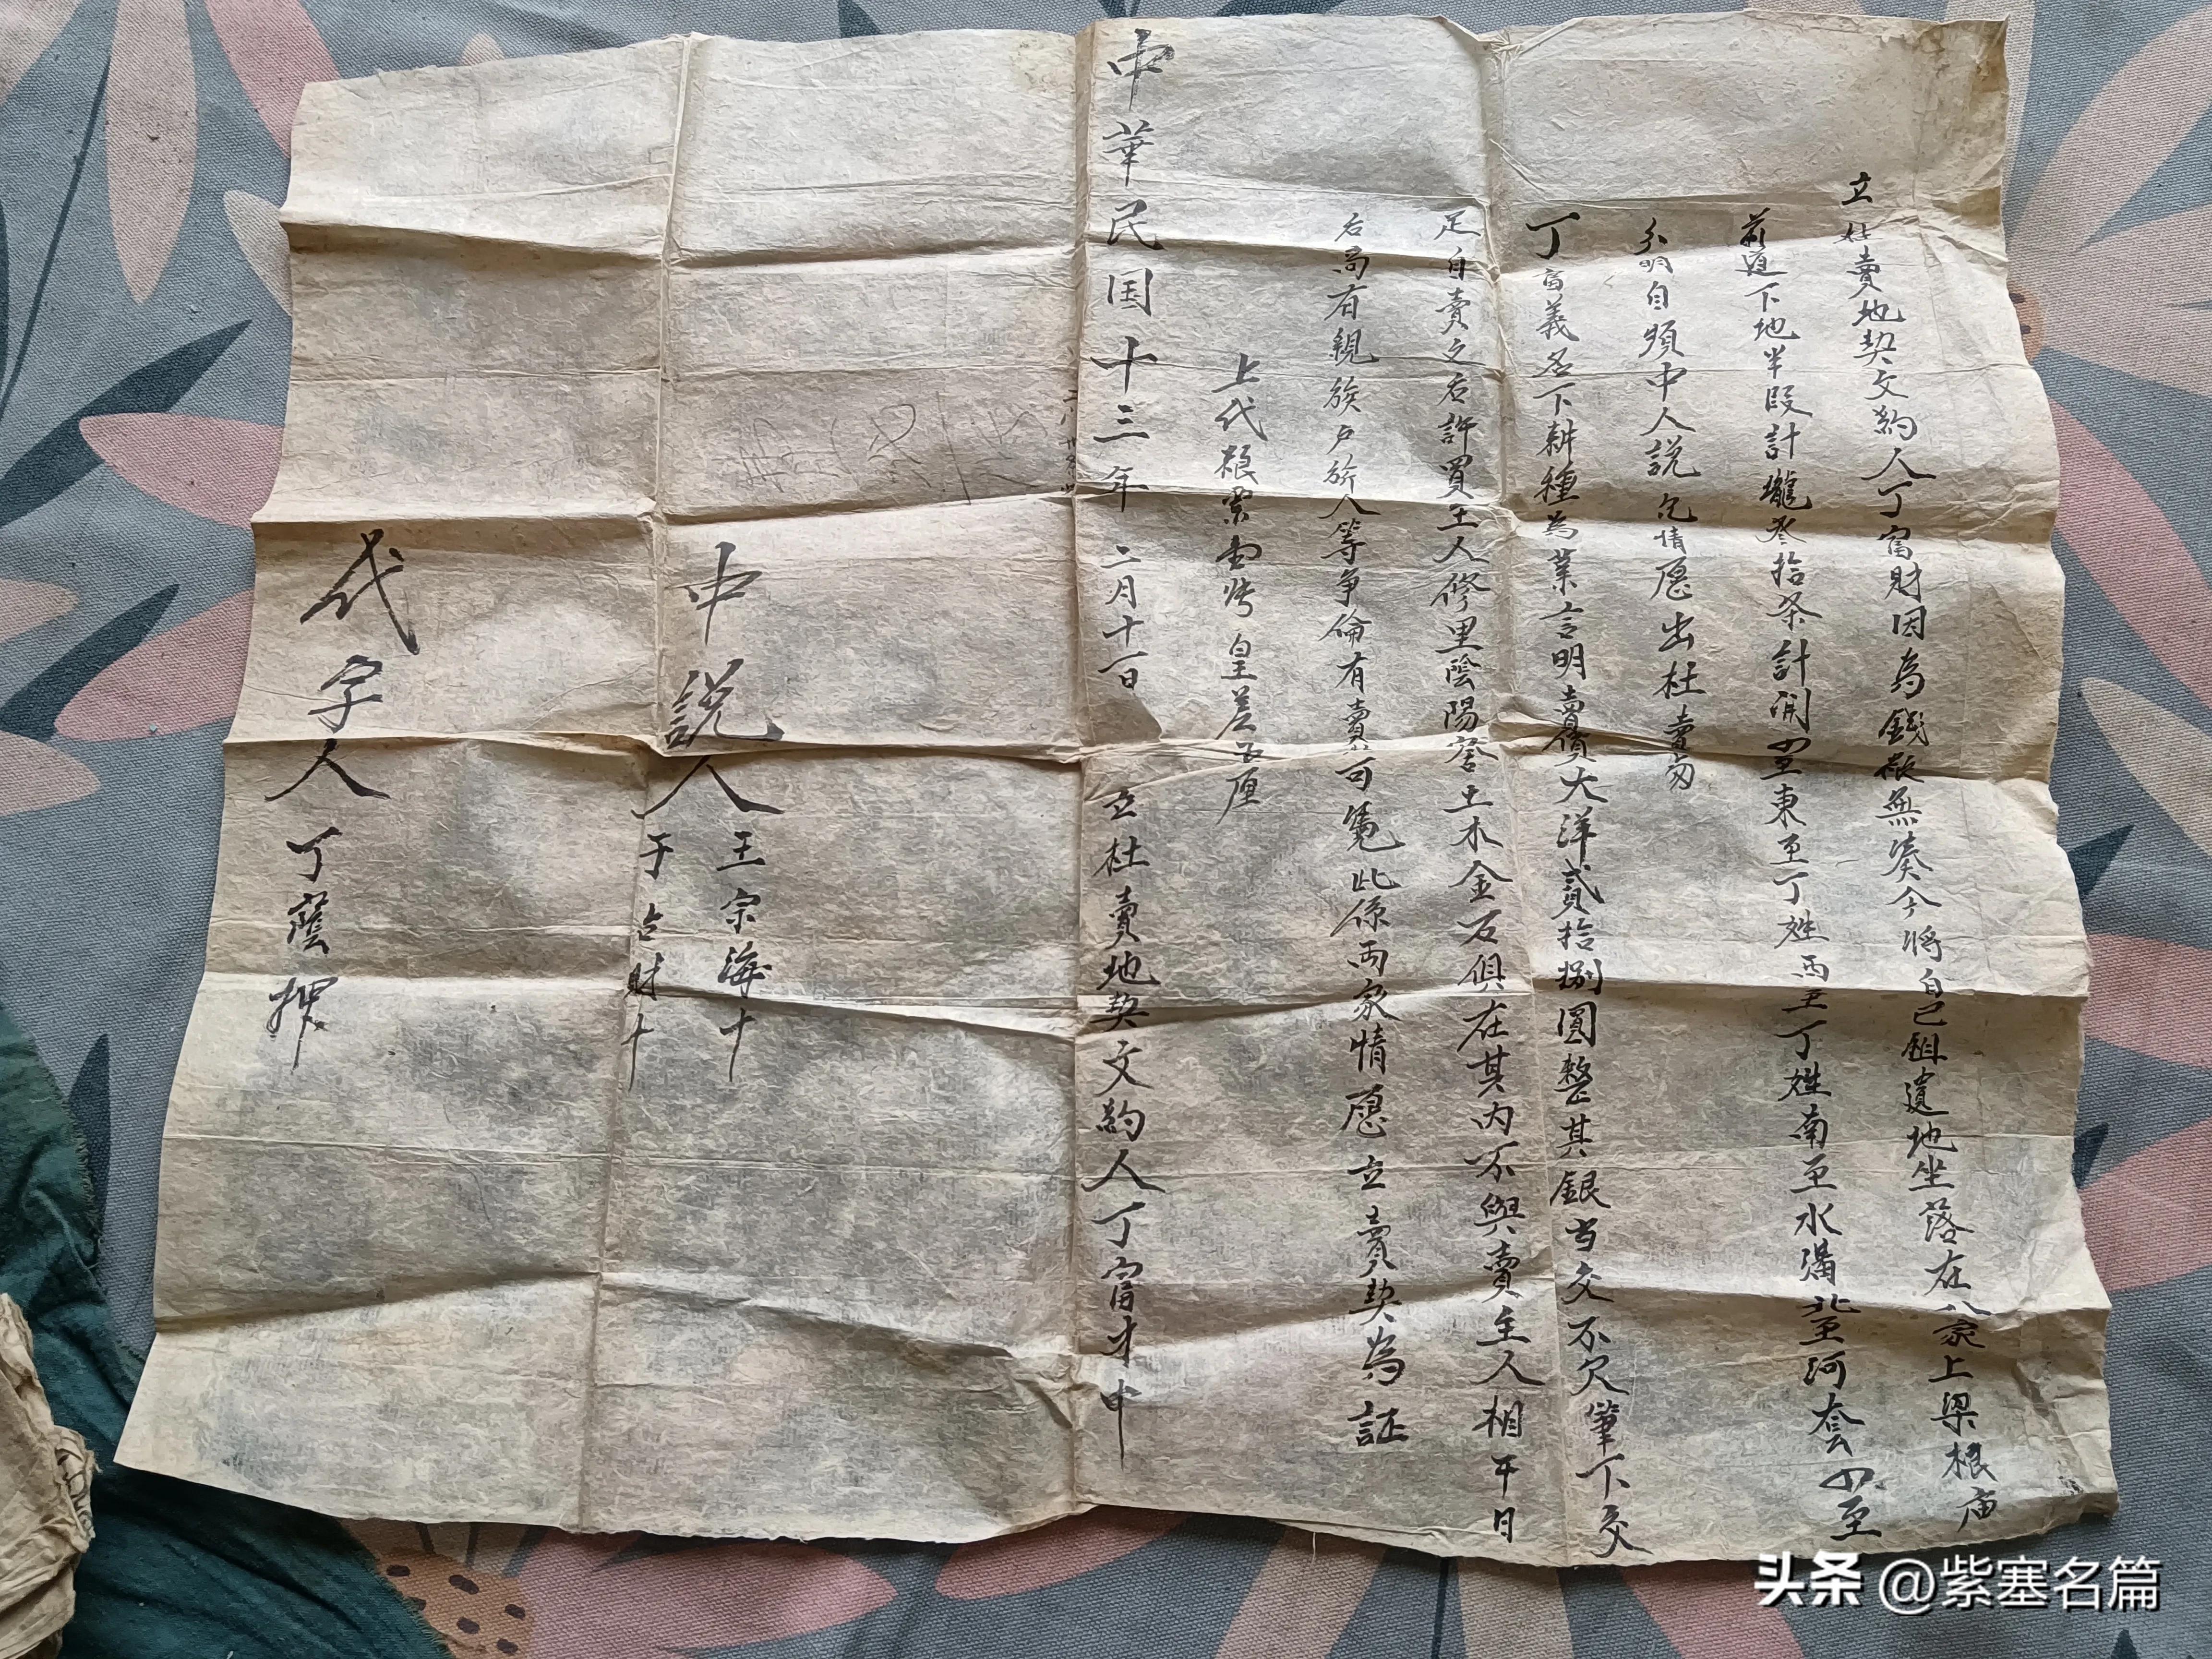 立杜賣地契文約人丁富財因為錢粮無湊今將自己祖遺地坐落在八家上梁根庙
前道下地半段計壠叁拾条計開四至東至丁姓西至丁姓南至水溝北至河套四至
分明自煩中人說允情愿出杜賣与
丁富義名下耕種為業言明賣價大洋貳拾捌圓整其銀当交不欠筆下交
足自賣之后許買主人修里陰陽宅土木金石俱在其内不與賣主人相干日
后尚有親族户族人等争倫有賣 可凴此係両家情愿立賣契為証
上代粮 皇差五厘
中華民国十三年二月十一日 立杜賣地契文約人丁富才中
中說人 王宗海十
于占財十
代字人 丁蔭押
头条 @紫塞名篇